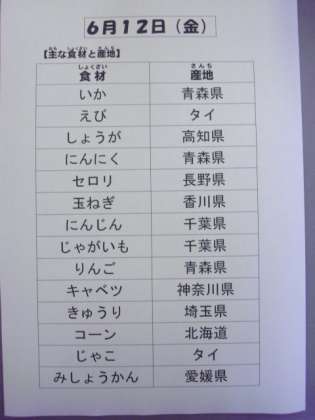 6月12日(金)
【主な食材と産地】
食材 産地
いか 青森県
えび タイ
しょうが 高知県
にんにく 青森県
セロリ 長野県
玉ねぎ 香川県
にんじん 千葉県
じゃがいも 千葉県
りんご 青森県
キャベツ 神奈川県
きゅうり 埼玉県
コーン 北海道
じゃこ タイ
みしょうかん 愛媛県